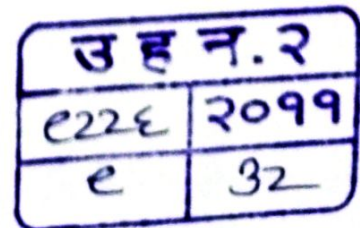 उ ह न. २
९२२६ २०११
९ ३२